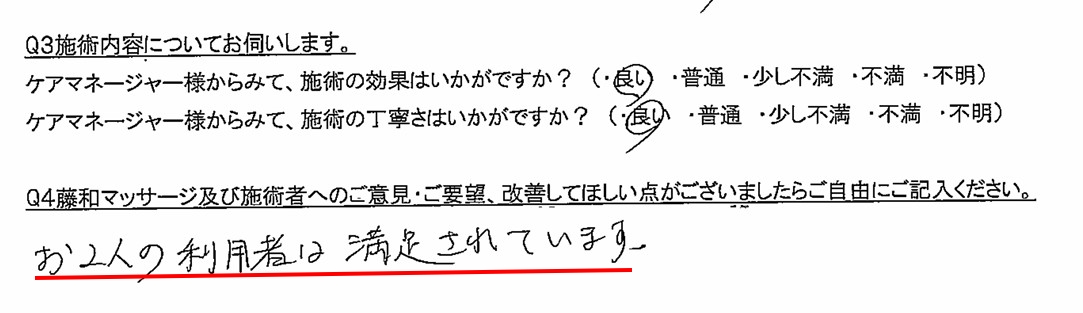 Q3施術内容についてお伺いします。
ケアマネージャー様からみて、施術の効果はいかがですか？（・良い ・普通 ・少し不満 ・不満 ・不明）
ケアマネージャー様からみて、施術の丁寧さはいかがですか？（・良い ・普通 ・少し不満 ・不満 ・不明）
Q4藤和マッサージ及び施術者へのご意見・ご要望、改善してほしい点がございましたらご自由にご記入ください。
お2人の利用者は満足されています。